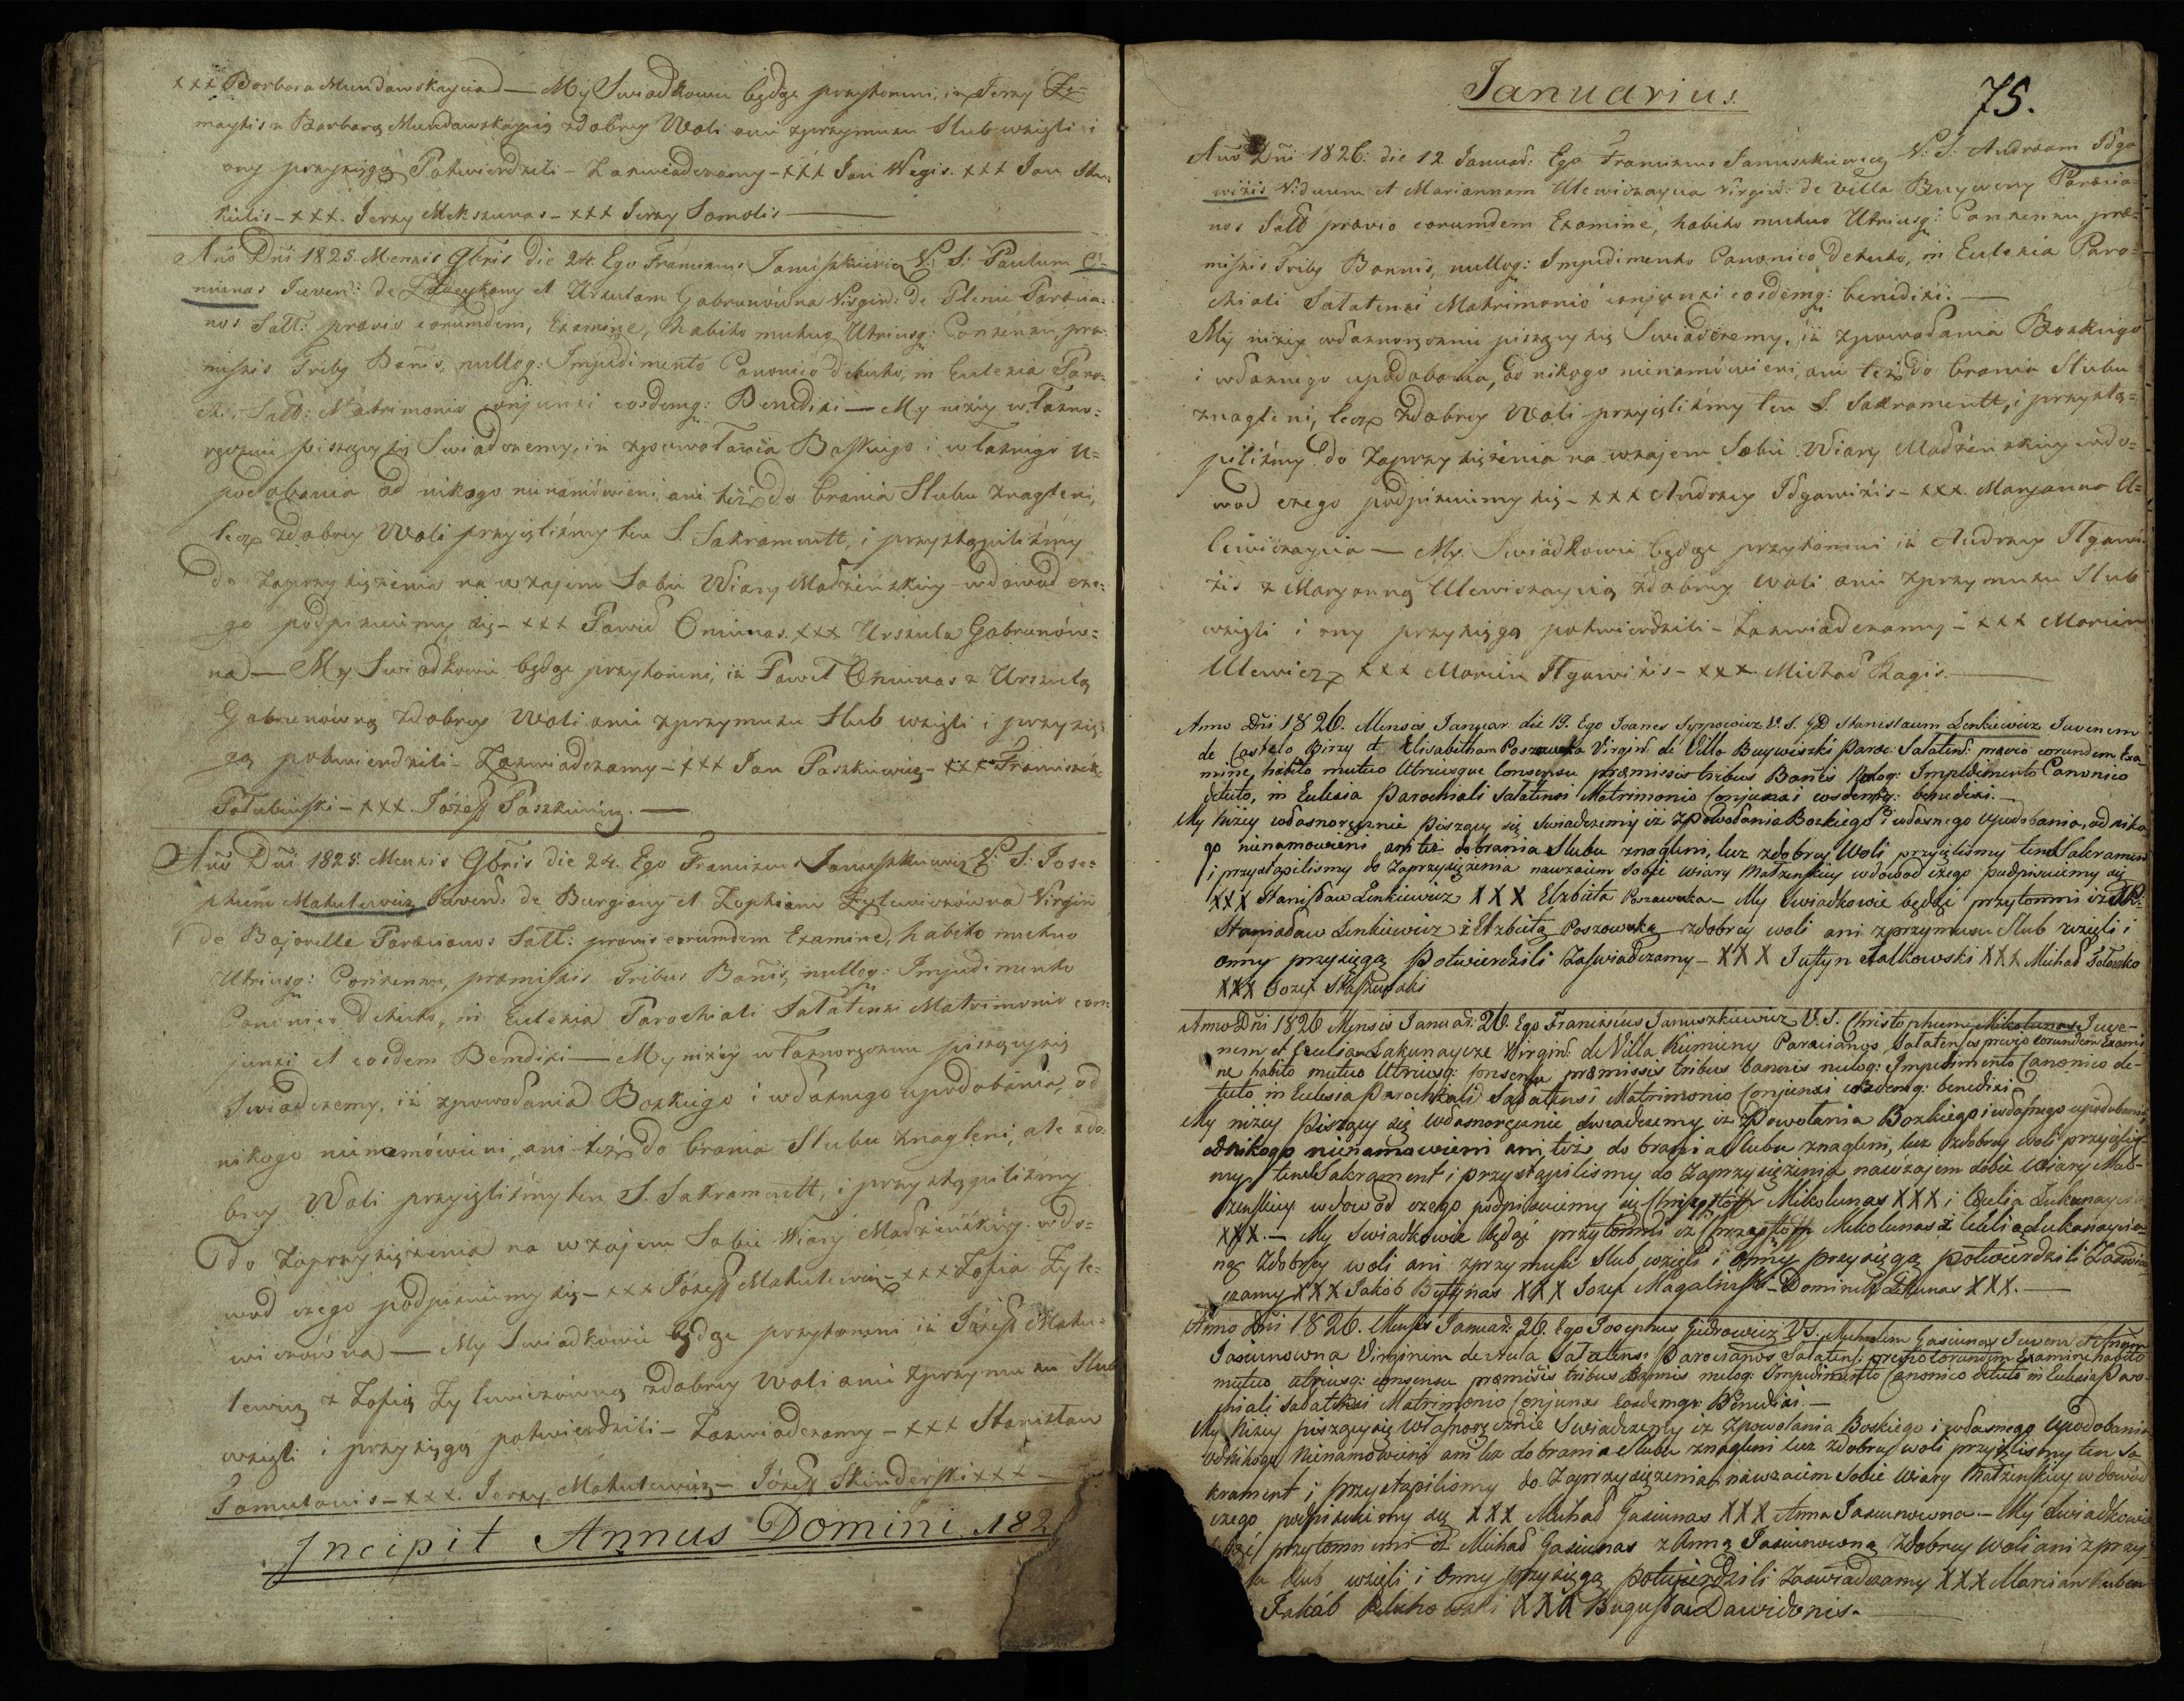 xxx Barbara Mundawskaycia — My Swiadkowie będąc przytomni, iż Jerzy Ze=
maytis z Barbarą Mundawskaycią zdobrey Woli ani zprzymusu Slub wzięli i
ony przysięgą Potwierdzili - Zaswiadczamy - xxx Jan Wegis. xxx Jan
kulis - xxx. Jerzy Mekszunas - xxx Jerzy Samolis
Anō Dn̄i 1825. Mensis 9bris die 24. Ego Franciscus Januszkiewicz V: S: Paulum
Juven: de et Ursulam Gabrunówna Virgin: de Plenie Parocia=
nos Sałł: prævio eorumdem, Examine, habito mutuo Utriusq: Consensu, præ=
missis Tribq Bañis, nulloq: Impedimento Canonico detecto, in Eclesia Paro=
chi: Sałł: Matrimonio conjunxi eosdemq: Benedixi — My niżey własno=
ręcznie piszący się Swiadczemy, iż zpowołania Boskiego i własnego u=
podobania od nikogo nienamówieni, ani też do brania Slubu znagleni,
lecz zdobrey Woli przyięliśmy ten S. Sakramentt, i przystąpiliśmy
do Zaprzysiężenia na wzajem Sobie Wiary Małżeńskiey - wdowod cze=
go podpisuiemy się - xxx Paweł Oniunas. xxx Urszula Gabrunów=
na — My Swiadkowie będąc przytomni, iż Paweł z Urszulą
Gabrunówną zdobrey Woli ani zprzymusu Slub wzięli i przysię=
gą potwierdzili - Zaswiadczamy - xxx Jan Paszkiewicz - xxx Franciszek
Połubiński - xxx. Józeff Paszkiewicz. —
Anō Dn̄i 1825. Mensis 9bris die 24. Ego Franciscus Januszkiewicz V: S: Jose=
phum Matutewicz Juven: de Burgiany et Zophiam Zylewiczówna Virgin
de Bajorelle Parocianos Sałł: prævio eorumdem Examine, habito mutuo
Utriusq: Consensu, præmissis Tribus Bañis, nulloq: Impedimento
Canonico detecto, in Eclesia Parochiali Sałatensi Matrimonio con=
junxi et eosdem Benedixi — My niżey własnoręcznie piszący się
Swiadczemy, iż zpowołania Boskiego i własnego upodobania, od
nikogo nienamówieni, ani też do brania Slubu znagleni, ale zdo=
brey Woli przyięliśmy ten S. Sakramentt, i przystąpiliśmy
do Zaprzysiężenia na wzajem Sobie Wiary Małżeńskiey. wdo=
wod czego podpisuiemy się - xxx Józeff Matutewicz - xxx Zofia Zyle=
wiczówna — My Swiadkowie będąc przytomni iż Józeff Matu=
tewicz z Zofią Zylewiczówną zdobrey Woli ani zprzymusu Slub
wzięli i przysięgą potwierdzili - Zaswiadczamy - xxx Stanisław
Samulonis - xxx. Jerzy Matutewicz - Józeff Skinderski xxx —
Incipit Annus Domini 182
Januarius
75.
Anō Dn̄i 1826: die 12 Januar: Ego Franciscus Januszkiewicz V: S: Andream Jłga
wizis Viduum et Mariannam Ulewiczaycia Virgin: de Villa Parocia=
nos Sałł prævio eorumdem Examine, habito mutuo Utriusq: Consensu, præ=
missis Tribq Bannis, nulloq: Impedimento Canonico detecto, in Eclesia Paro=
chiali Sałatensi Matrimonio conjunxi eosdemq: benedixi. —
My niżey własnoręcznie piszący się Swiadczemy, iż zpowołania Boskiego
i własnego upodobania, od nikogo nienamówieni, ani też do brania Slubu
znagleni, lecz zdobrey Woli przyięliśmy ten S. Sakramentt, i przystą=
piliśmy do Zaprzysiężenia na wzajem Sobie Wiary Małżeńskiey wdo=
wod czego podpisuiemy się - xxx Andrzey Jłgawizis - xxx. Maryanna U=
lewiczaycia — My Swiadkowie będąc przytomni iż Andrzey Jłgawi
zis z Maryanną Ulewiczaycią zdobrey Woli ani zprzymusu Slub
wzięli i ony przysięgą potwierdzili - Zaswiadczamy - xxx Marcin
Ulewicz xxx Marcin Jłgawizis - xxx Michał Ragis. —
Anno Dn̄i 1826. Mensis Januar. die 19. Ego Joanes Syrpowicz V. S. GD Stanislaum Linkiewicz Juvenem
de Castelo Birzy et Elisabetham Poszawska Virgin: de Villa Buywiszki Paroc: Sałaten: prævio eorundem Exa
mine, habito mutuo Utriusque Consensu præmissis tribus Banis nuloq: Impedimento Canonico
detecto, in Eclesia Parochiali Sałatensi Matrimonio Conjunxi eosdemq: benedixi. —
My Niżey własnoręcznie Piszący się Swiadczemy iż zPowołania Bozkiego i własnego Upodobania, od niko
go nienamowieni ani też dobrania Slubu znagleni, lecz zdobrey Woli przyięlismy ten Sakrament
i przystąpilismy do Zaprzysiężenia nawzaiem Sobie Wiary Małżenskiey wdowod czego podpisuiemy się
XXX Stanisław Linkiewicz XXX Elżbieta Poszawska — My Swiadkowie będąc przytomni iż
Stanisław Linkiewicz z Elżbietą Poszowską zdobrey woli ani zprzymusu Slub wzięli i
onny przysięgą Potwierdzili Zaswiadczamy — XXX Justyn Jałkowski XXX Michał
XXX Jozef
Anno Dn̄i 1826 Mensis Januar. 26. Ego Franciscus Januszkiewicz V. S. Christophum Mikolunas Juve-
nem et Ceciliam Lukunaycze Virgin: de Villa Kumieny Parocianos Sałatenses prævio eorundem Exami
ne habito mutuo Utriusq: consensu præmissis tribus bannis nuloq: Impedimento Canonico de-
tecto in Eclesia Parochiali Sałatensi Matrimonio Conjunxi eosdemq: benedixi
My niżey Piszący się własnoręcznie, swiadczemy iż zPowołania Bozkiego i własnego upodobania
od nikogo nienamowieni ani też do brania slubu znagleni, lecz zdobrey woli przyięlis-
my ten Sakrament i przystąpilismy do Zaprzysiężenia nawzajem sobie Wiary Mał-
żenskiey wdowod czego podpisuiemy się Chrisztoff Mikolunas XXX i Cecilia Lukunaycia
XXX. — My Swiadkowie będąc przytomni iż Chrzysztoff Mikolunas z Cecilią Lukunaycia
ną zdobrey woli ani zprzymusu Slub wzięli i onny przysięgą potwierdzili Zaswia
czamy XXX Jakób XXX Jozef Magaliński - Dominik XXX. —
Anno Dn̄i 1826. Mensis Januar: 26. Ego Josephus Giedrowicz V. S. Michalem Gasiunas Juvem et Annam
Jasiunowna Virginem de Aula Sałatensi Parocianos Sałaten: prævio eorundem Examine habito
mutuo utriusq: consensu præmisis tribus Bannis nuloq: Impedimento Canonico detecto in Eclesia Paro-
chiali Sałatensi Matrimonio Conjunxi Eosdemq: Benedixi. —
My Niżey piszący się Własnoręcznie Swiadczemy iż zpowołania Boskiego i własnego Upodobania
od nikogo Nienamowieni ani też dobrania Slubu znagleni lecz zdobrey woli przyięlismy ten Sa
krament i przystąpilismy do Zaprzysiężenia nawzaiem Sobie Wiary Małżenskiey wdowód
czego podpisuiemy się XXX Michał Gasiunas XXX Anna Jasiunowna. — My Swiadkowie
przytomnemi iż Michał Gasiunas z Anną Jasiunowną zdobrey woli ani zprzy-
Slub wzięli i Onny przysięgą Potwierdzili Zaswiadczamy XXX Marcian
Jakób XXX Bogusław Dawidonis.